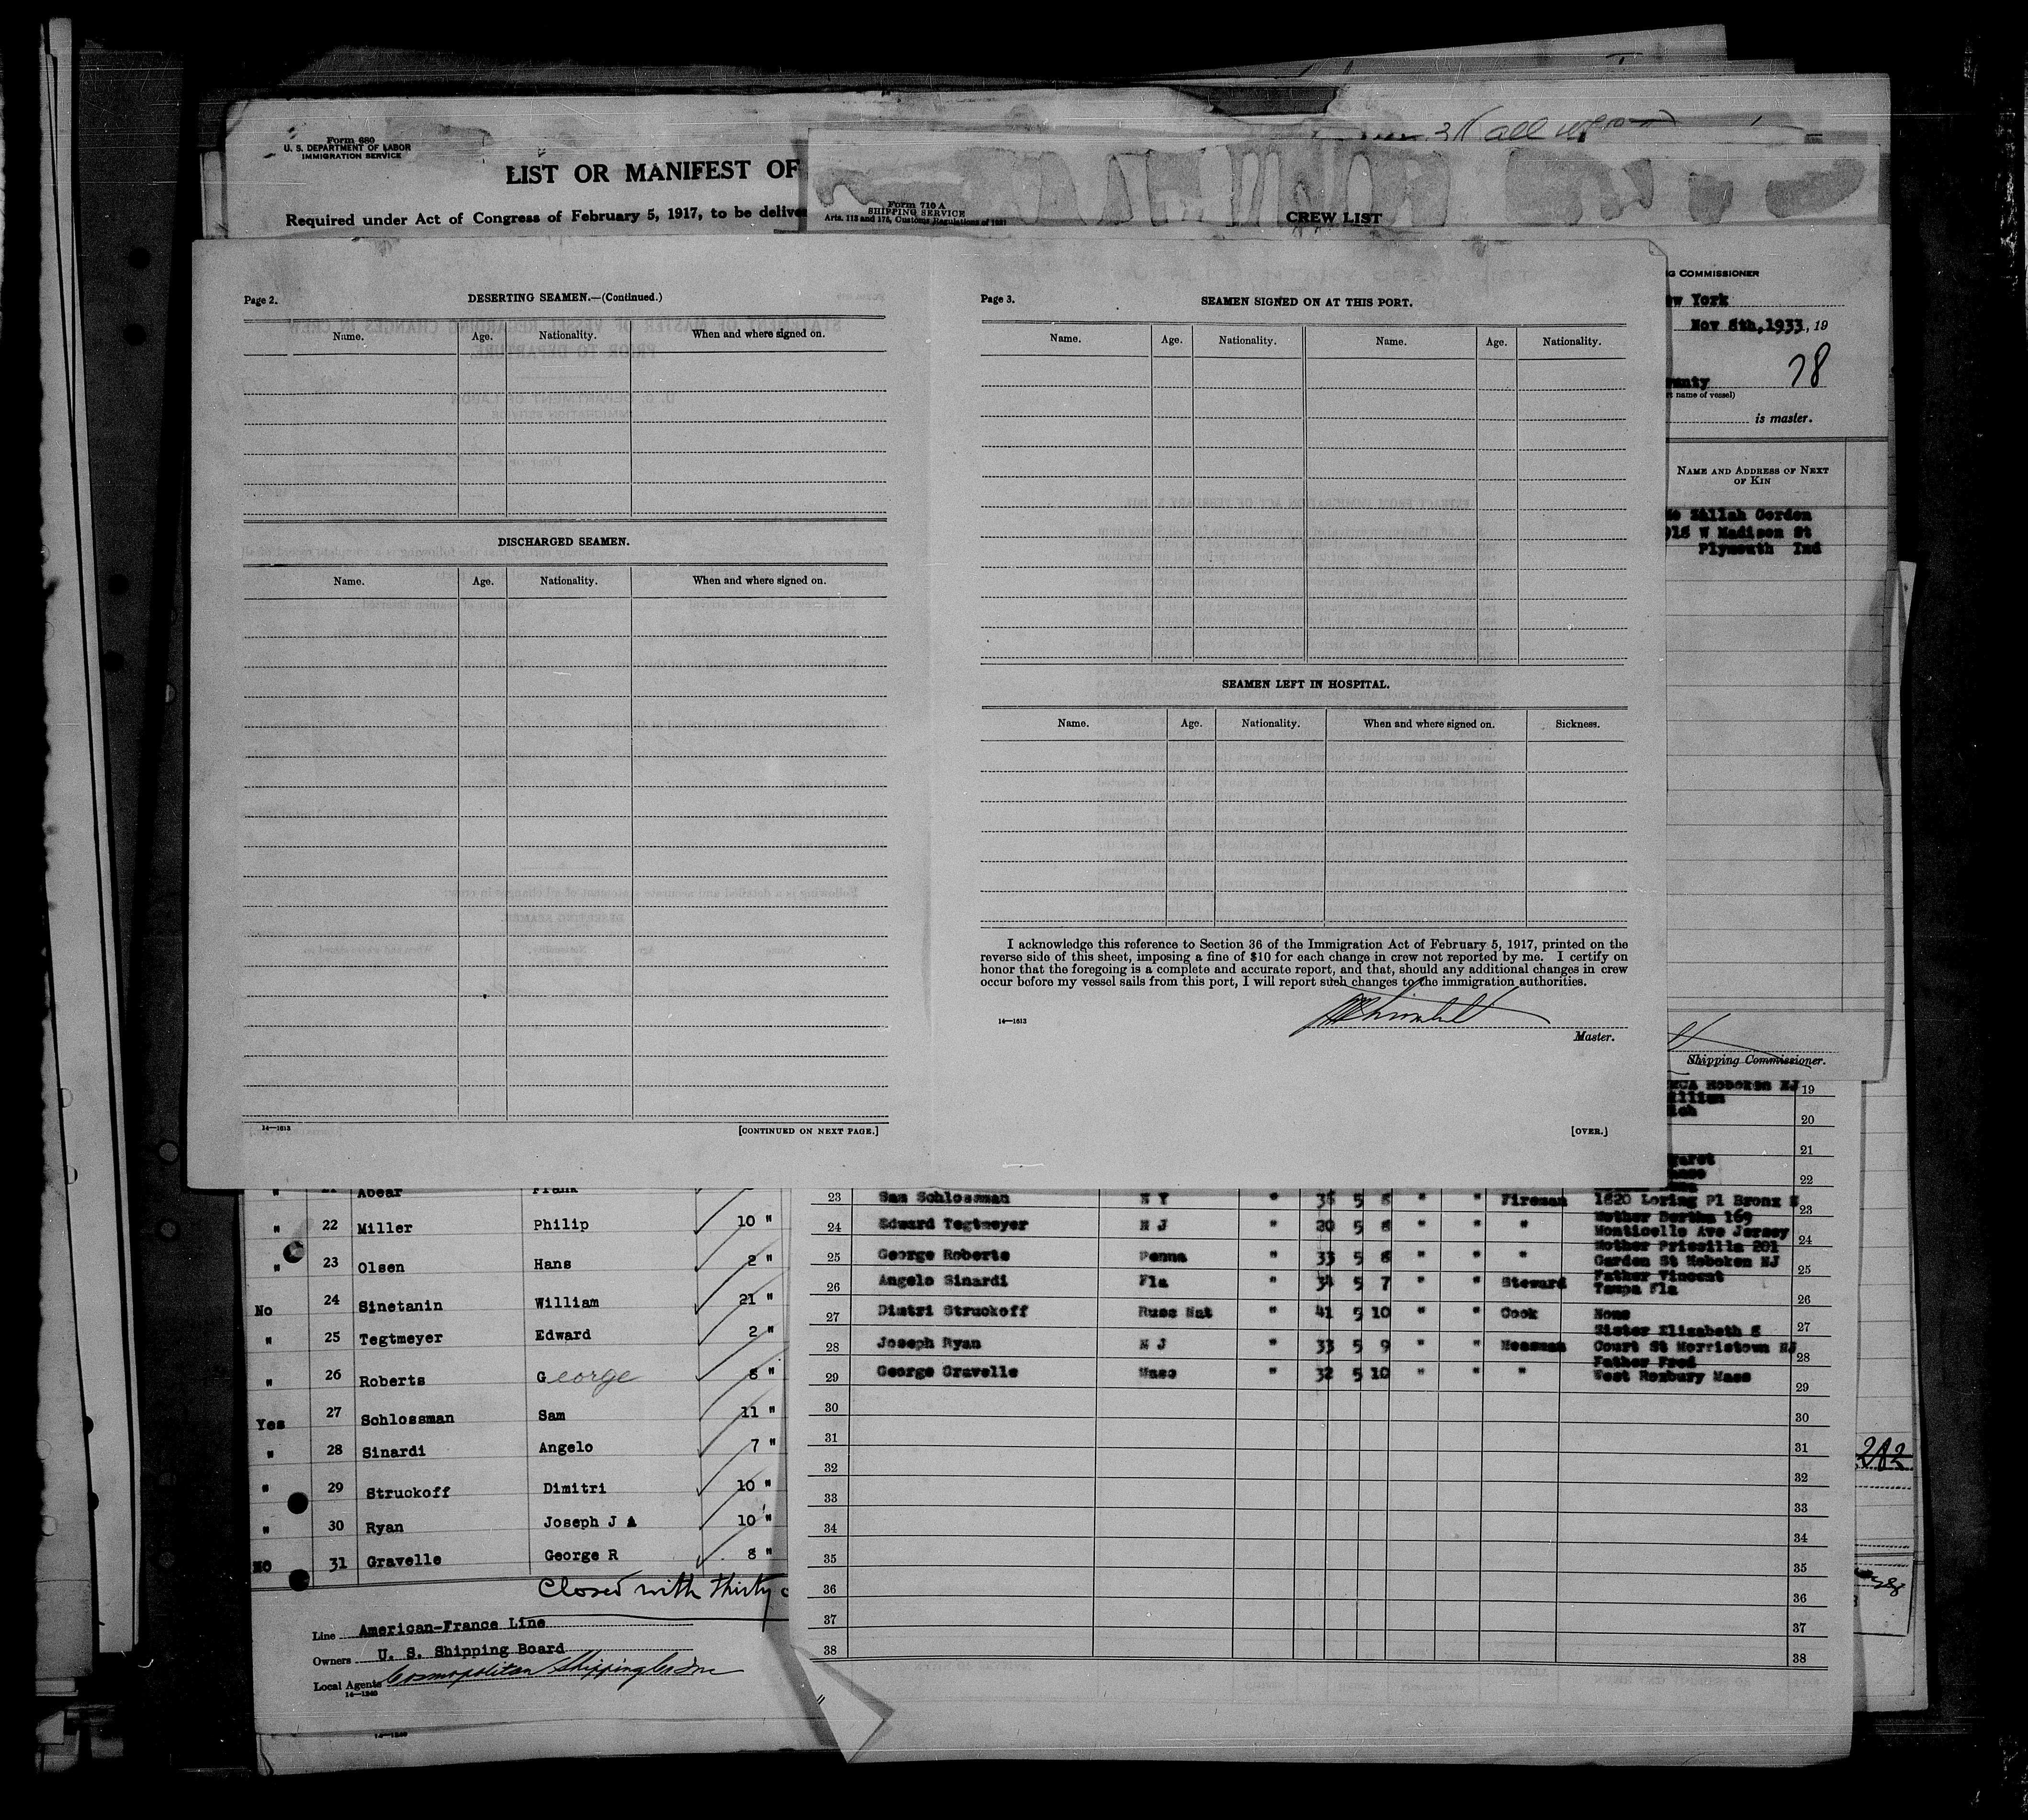 Form 680
U. S. DEPARTMENT OF LABOR
IMMIGRATION SERVICE
LIST OR MANIFEST OF
Required under Act of Congress of February 5, 1917, to be delive
Form 710 A
SHIPPING SERVICE
Arts. 113 and 175, Customs Regulations of 1931
CREW LIST
all
Page 2.
DESERTING SEAMEN.—(Continued.)
Name. Age. Nationality. When and where signed on.
DISCHARGED SEAMEN.
Name. Age. Nationality. When and where signed on.
14—1613
[CONTINUED ON NEXT PAGE.]
Page 3.
SEAMEN SIGNED ON AT THIS PORT.
Name. Age. Nationality. Name. Age. Nationality.
SEAMEN LEFT IN HOSPITAL.
Name. Age. Nationality. When and where signed on. Sickness.
I acknowledge this reference to Section 36 of the Immigration Act of February 5, 1917, printed on the
reverse side of this sheet, imposing a fine of $10 for each change in crew not reported by me. I certify on
honor that the foregoing is a complete and accurate report, and that, should any additional changes in crew
occur before my vessel sails from this port, I will report such changes to the immigration authorities.
14—1613
Master.
[OVER.]
NG COMMISSIONER
ew York
Nov 8th,1933, 19
78
unty
t name of vessel)
is master.
NAME AND ADDRESS OF NEXT
OF KIN
Zillah Gordon
918 W Madison St
Plymouth Ind
Shipping Commissioner.
MCA Hoboken NJ 19
illian
20
21
garet
22
" 21 Abear Frank
" 22 Miller Philip 10 "
" 23 Olsen Hans 2 "
No 24 Sinetanin William 21 "
" 25 Tegtmeyer Edward 2 "
" 26 Roberts George 8 "
Yes 27 Schlossman Sam 11 "
" 28 Sinardi Angelo 7 "
" 29 Struckoff Dimitri 10 "
" 30 Ryan Joseph J A 10 "
No 31 Gravelle George R 8 "
Closed with thirty
Line American-France Line
Owners U. S. Shipping Board
Local Agents Cosmopolitan Shipping Co Inc
14—1240
14—1240
23 Sam Schlossman N Y " 35 5 8 " " Fireman 1820 Loring Pl Bronx N 23
24 Edward Tegtmeyer N J " 20 5 8 " " " Mother Bertha 169
Monticello Ave Jersey 24
25 George Roberts Penna " 33 5 8 " " " Mother Priscilla 201
Garden St Hoboken NJ 25
26 Angelo Sinardi Fla " 34 5 7 " " Steward Father Vincent
Tampa Fla 26
27 Dimtri Struckoff Russ Nat " 41 5 10 " " Cook None 27
28 Joseph Ryan N J " 33 5 9 " " Messman Sister Elizabeth S
Court St Morristown NJ 28
29 George Gravelle Mass " 32 5 10 " " " Father Fred
West Roxbury Mass 29
30 30
31 31
32 32
33 33
34 34
35 35
36 36
37 37
38 38
282